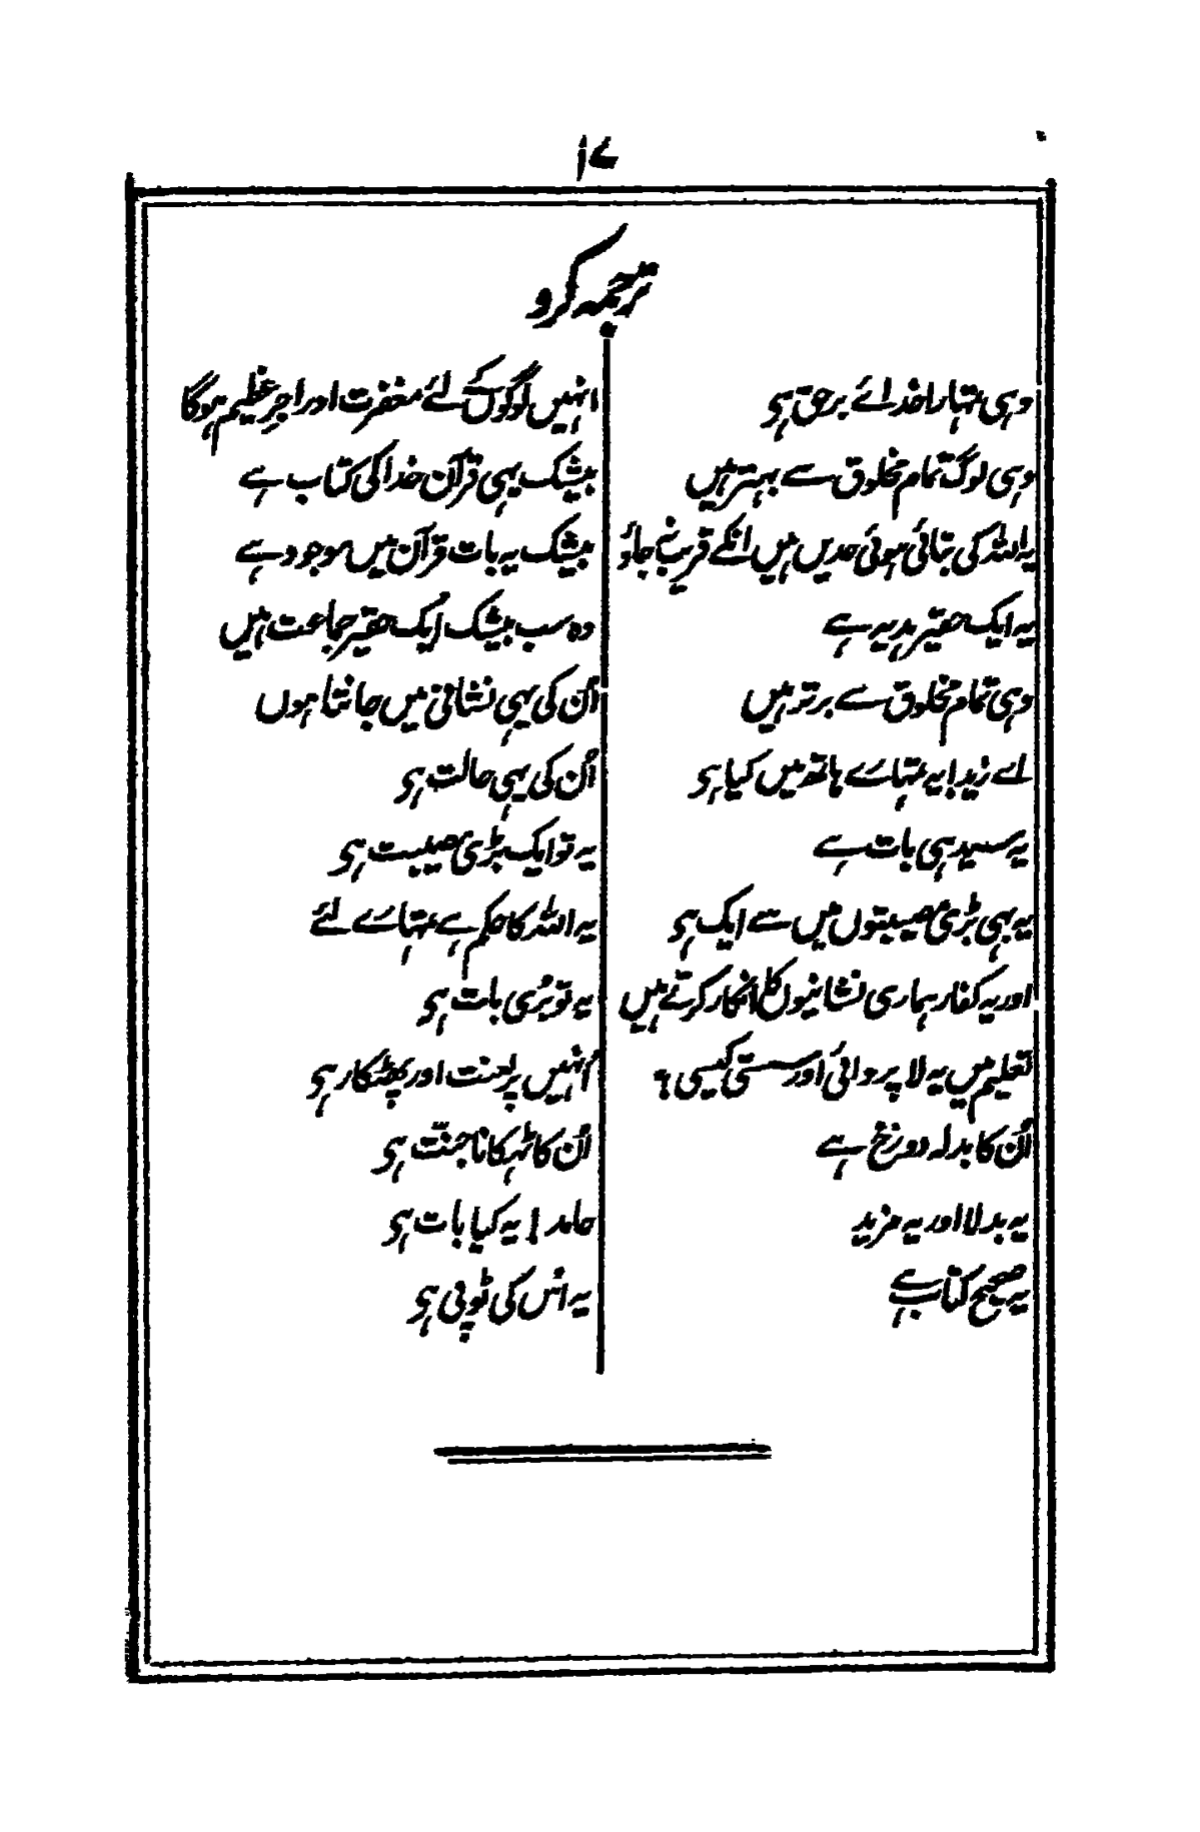 ۱۷
ترجمہ کرو
وہی تمہارا خدائے برحق ہی
وہی لوگ تمام مخلوق سے بہتر ہیں
یہ اللہ کی بتائی ہوئی حدیں ہیں انکے قریب نہ جاؤ
یہ ایک حقیر ہدیہ ہے
وہی تمام مخلوق سے برتر ہیں
اے زید! یہ تمہارے ہاتھ میں کیا ہی
یہ سیدہی بات ہے
یہ بہی بڑی مصیبتوں میں سے ایک ہی
اور یہ کفار ہماری نشانیوں کا انکار کرتے ہیں
تعلیم میں یہ لا پروائی اور سستی کیسی ؟
اُن کا بدلہ دوزخ ہے
یہ بدلا اور یہ مزید
یہ صحیح کتاب ہے
انہیں لوگوں کے لئے مغفرت اور اجرِ عظیم ہوگا
بیشک یہی قرآن خدا کی کتاب ہے
بیشک یہ بات قرآن میں موجود ہے
وہ سب بیشک ایک حقیر جماعت ہیں
اُن کی یہی نشانی میں جانتا ہوں
اُن کی یہی حالت ہی
یہ تو ایک بڑی مصیبت ہی
یہ اللہ کا حکم ہے تمہارے لئے
یہ تو بُری بات ہی
اُنہیں پر لعنت اور پھٹکار ہی
اُن کا ٹہکانا جنّت ہی
حامد! یہ کیا بات ہی
یہ اُس کی ٹوپی ہی